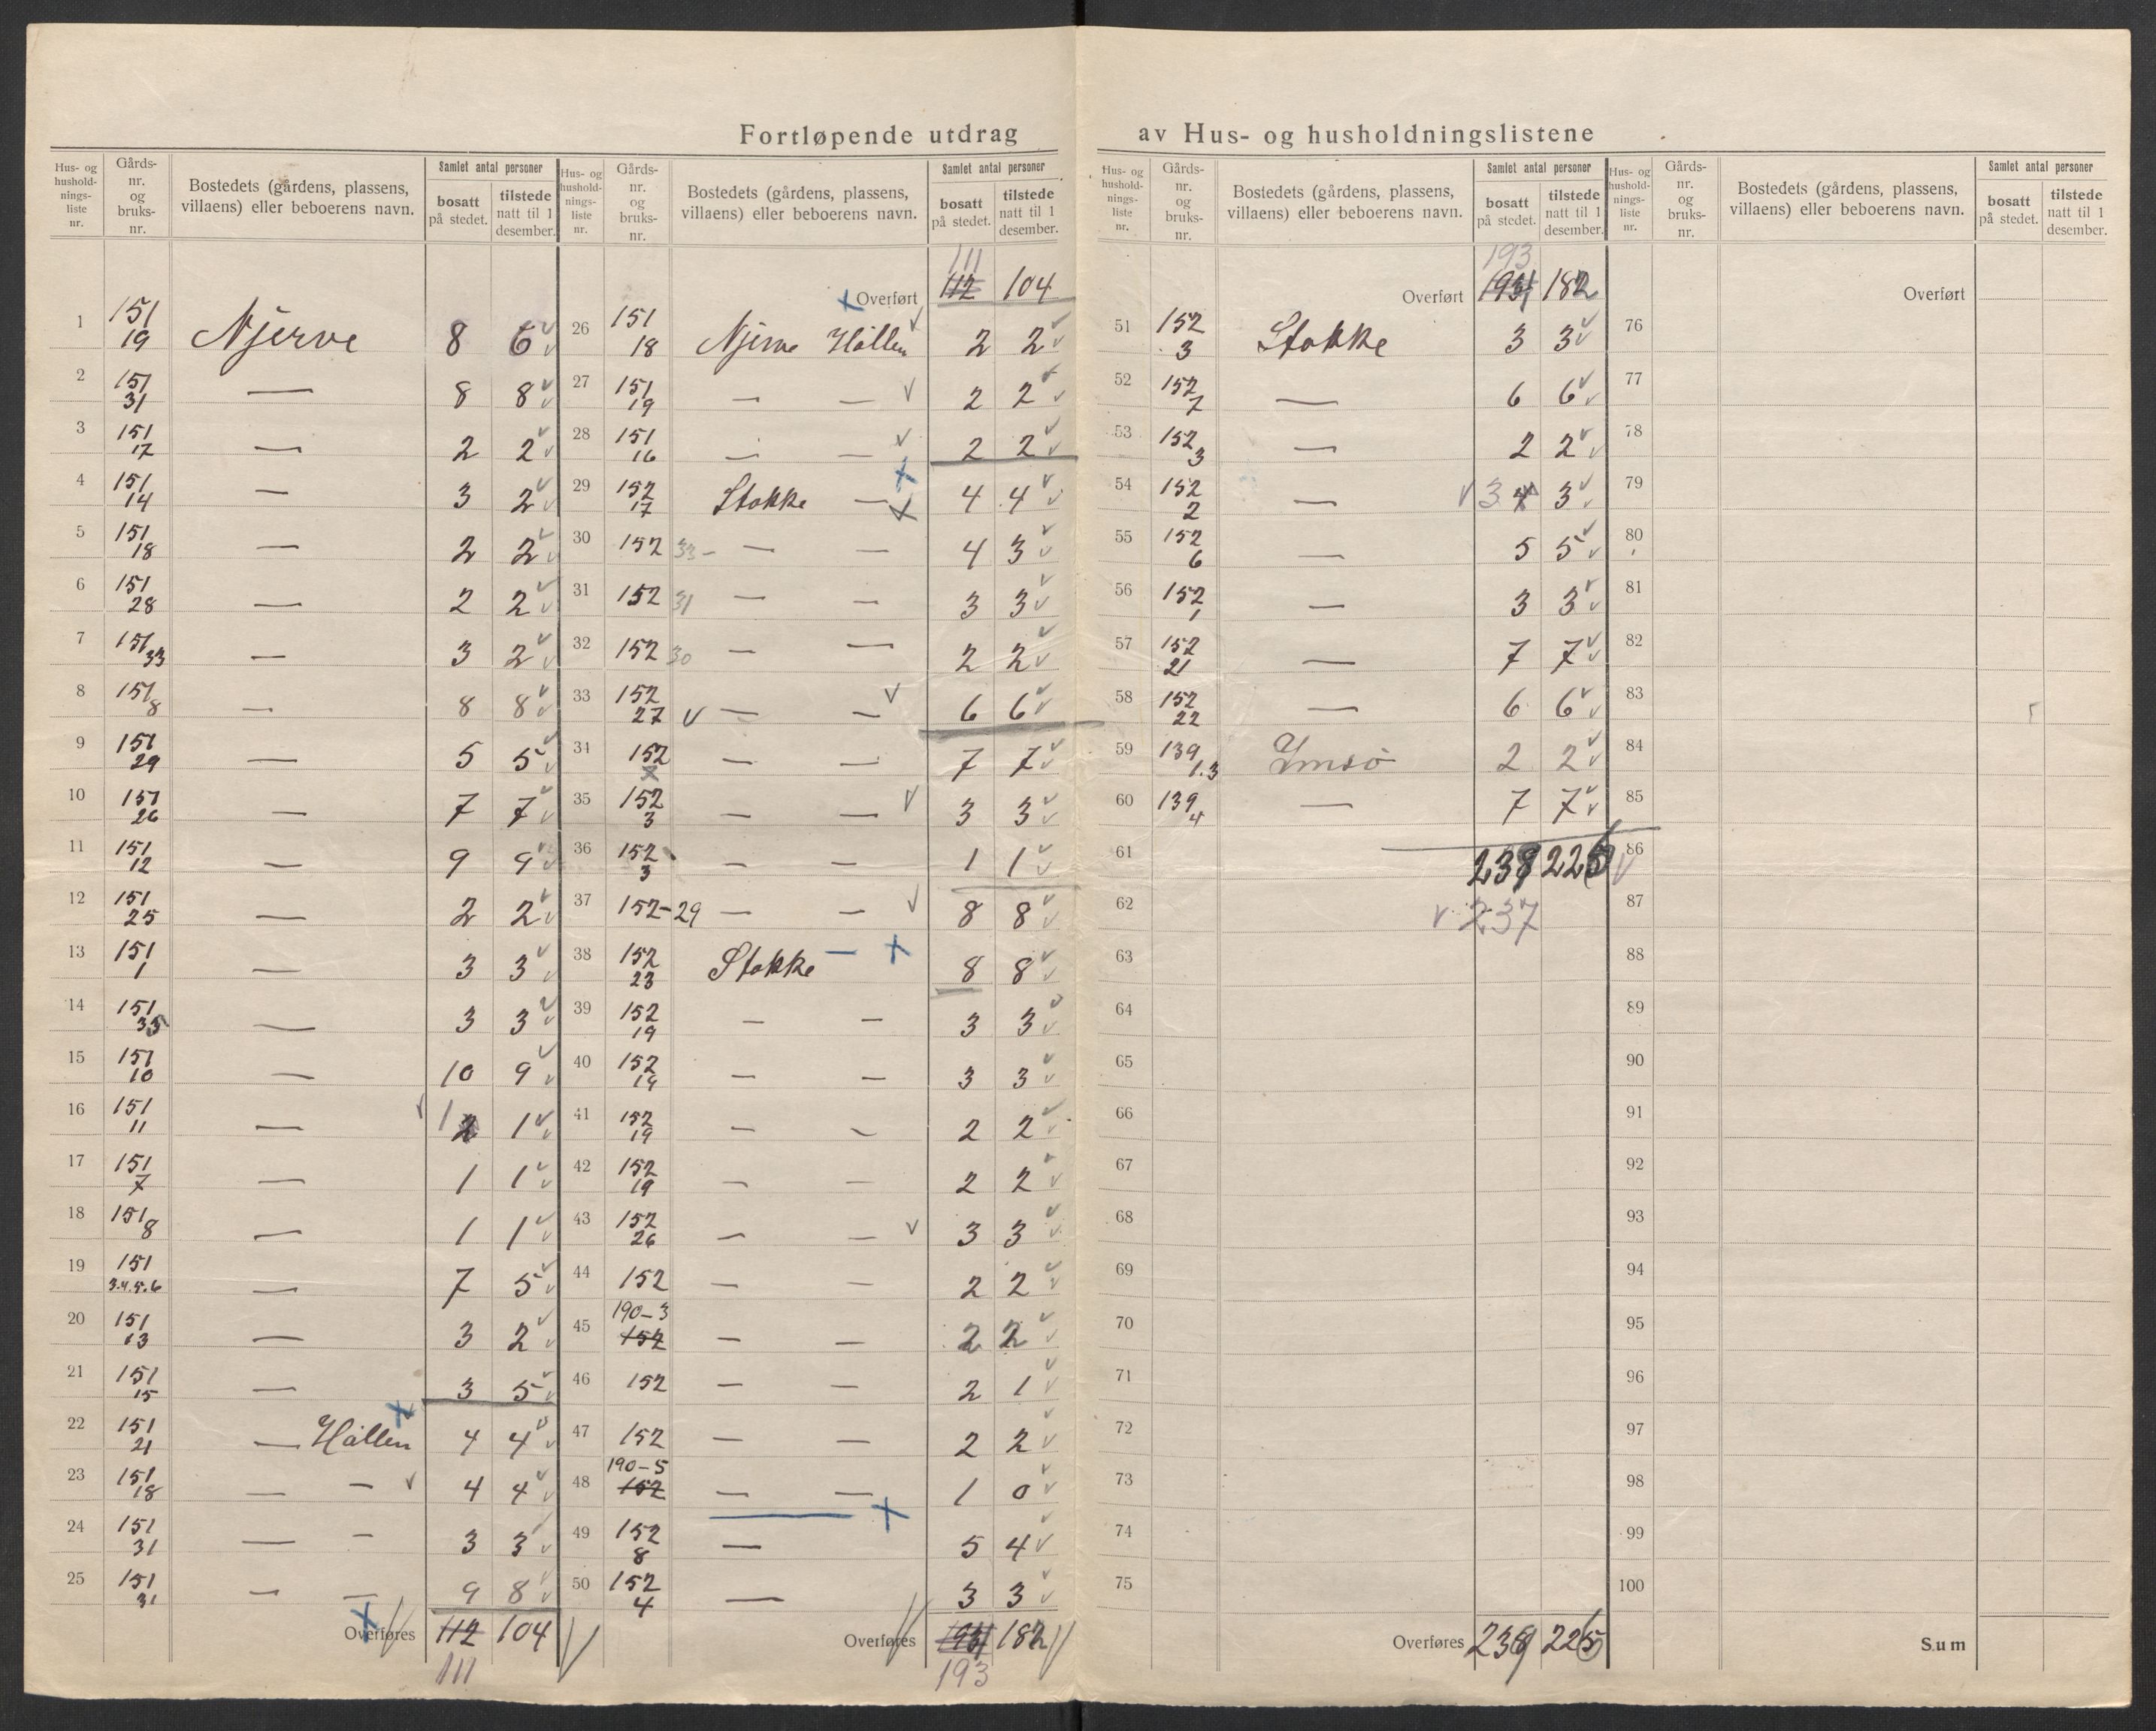 Fortløpende utdrag av Hus- og husholdningslistene
Hus- og hushold- nings- liste nr. | Gårds- nr. og bruks- nr. | Bostedets (gårdens, plassens, villaens) eller beboerens navn. | Samlet antal personer | bosatt på stedet. | tilstede natt til 1 desember.
1 151/19 Njerve 8 6
2 151/31 — 8 8
3 151/17 — 2 2
4 151/14 — 3 2
5 151/18 — 2 2
6 151/28 — 2 2
7 151/33 — 3 2
8 151/8 — 8 8
9 151/29 — 5 5
10 151/26 — 7 7
11 151/12 — 9 9
12 151/25 — 2 2
13 151/1 — 3 3
14 151/35 — 3 3
15 151/10 — 10 9
16 151/11 — 1 2 1
17 151/7 — 1 1
18 151/8 — 1 1
19 151/3.4.5.6 — 7 5
20 151/13 — 3 2
21 151/15 — 3 5
22 151/21 — Hållen 4 4
23 151/18 — — 4 4
24 151/31 — — 3 3
25 151/31 — — 9 8
Overføres 112 104
111
Hus- og hushold- nings- liste nr. | Gårds- nr. og bruks- nr. | Bostedets (gårdens, plassens, villaens) eller beboerens navn. | Samlet antal personer | bosatt på stedet. | tilstede natt til 1 desember.
111
Overført 112 104
26 151/18 Njerve Hållen 2 2
27 151/19 — — 2 2
28 151/16 — — 2 2
29 152/17 Stokke — 4 4
30 152 33 — — 4 3
31 152 31 — — 3 3
32 152 30 — — 2 2
33 152/27 — — 6 6
34 152/7 — — 7 7
35 152/3 — — 3 3
36 152/3 — — 1 1
37 152-29 — — 8 8
38 152/23 Stokke — 8 8
39 152/19 — — 3 3
40 152/19 — — 3 3
41 152/19 — — 2 2
42 152/19 — — 2 2
43 152/26 — — 3 3
44 152 — — 2 2
45 190-3 152 — — 2 2
46 152 — — 2 1
47 152 — — 2 2
48 190-5 152 — — 1 0
49 152/8 — 5 4
50 152/4 — 3 3
Overføres 194 182
193
Hus- og hushold- nings- liste nr. | Gårds- nr. og bruks- nr. | Bostedets (gårdens, plassens, villaens) eller beboerens navn. | Samlet antal personer | bosatt på stedet. | tilstede natt til 1 desember.
193
Overført 194 182
51 152/3 Stokke 3 3
52 152/7 — 6 6
53 152/3 — 2 2
54 152/2 — 3 4 3
55 152/6 — 5 5
56 152/1 — 3 3
57 152/21 — 7 7
58 152/22 — 6 6
59 139/1.3 Imsö 2 2
60 139/4 — 7 7
61 239 226
62 237
63
64
65
66
67
68
69
70
71
72
73
74
75
Overføres 239 226
Hus- og hushold- nings- liste nr. | Gårds- nr. og bruks- nr. | Bostedets (gårdens, plassens, villaens) eller beboerens navn. | Samlet antal personer | bosatt på stedet. | tilstede natt til 1 desember.
Overført
76
77
78
79
80
81
82
83
84
85
86
87
88
89
90
91
92
93
94
95
96
97
98
99
100
Sum